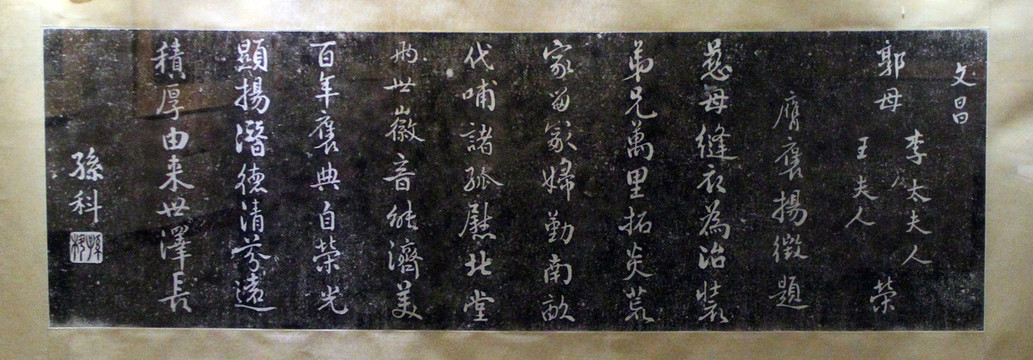 文昌
郭母李太夫人
王夫人榮
膺褒揚徵題
慈母縫衣為治裝
弟兄萬里拓炎荒
家留冢婦勤南畝
代哺諸孤慰北堂
兩世徽音能濟美
百年褒典自榮光
顯揚潛德清芬遠
積厚由来世澤長
孫科
孫科